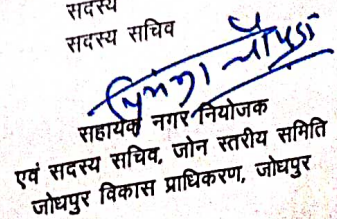 सदस्य
सदस्य सचिव
सहायक नगर नियोजक
एवं सदस्य सचिव, जोन स्तरीय समिति
जोधपुर विकास प्राधिकरण, जोधपुर